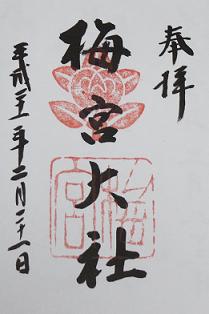 奉拝
梅宮大社
梅宮
平成二十二年二月二十一日